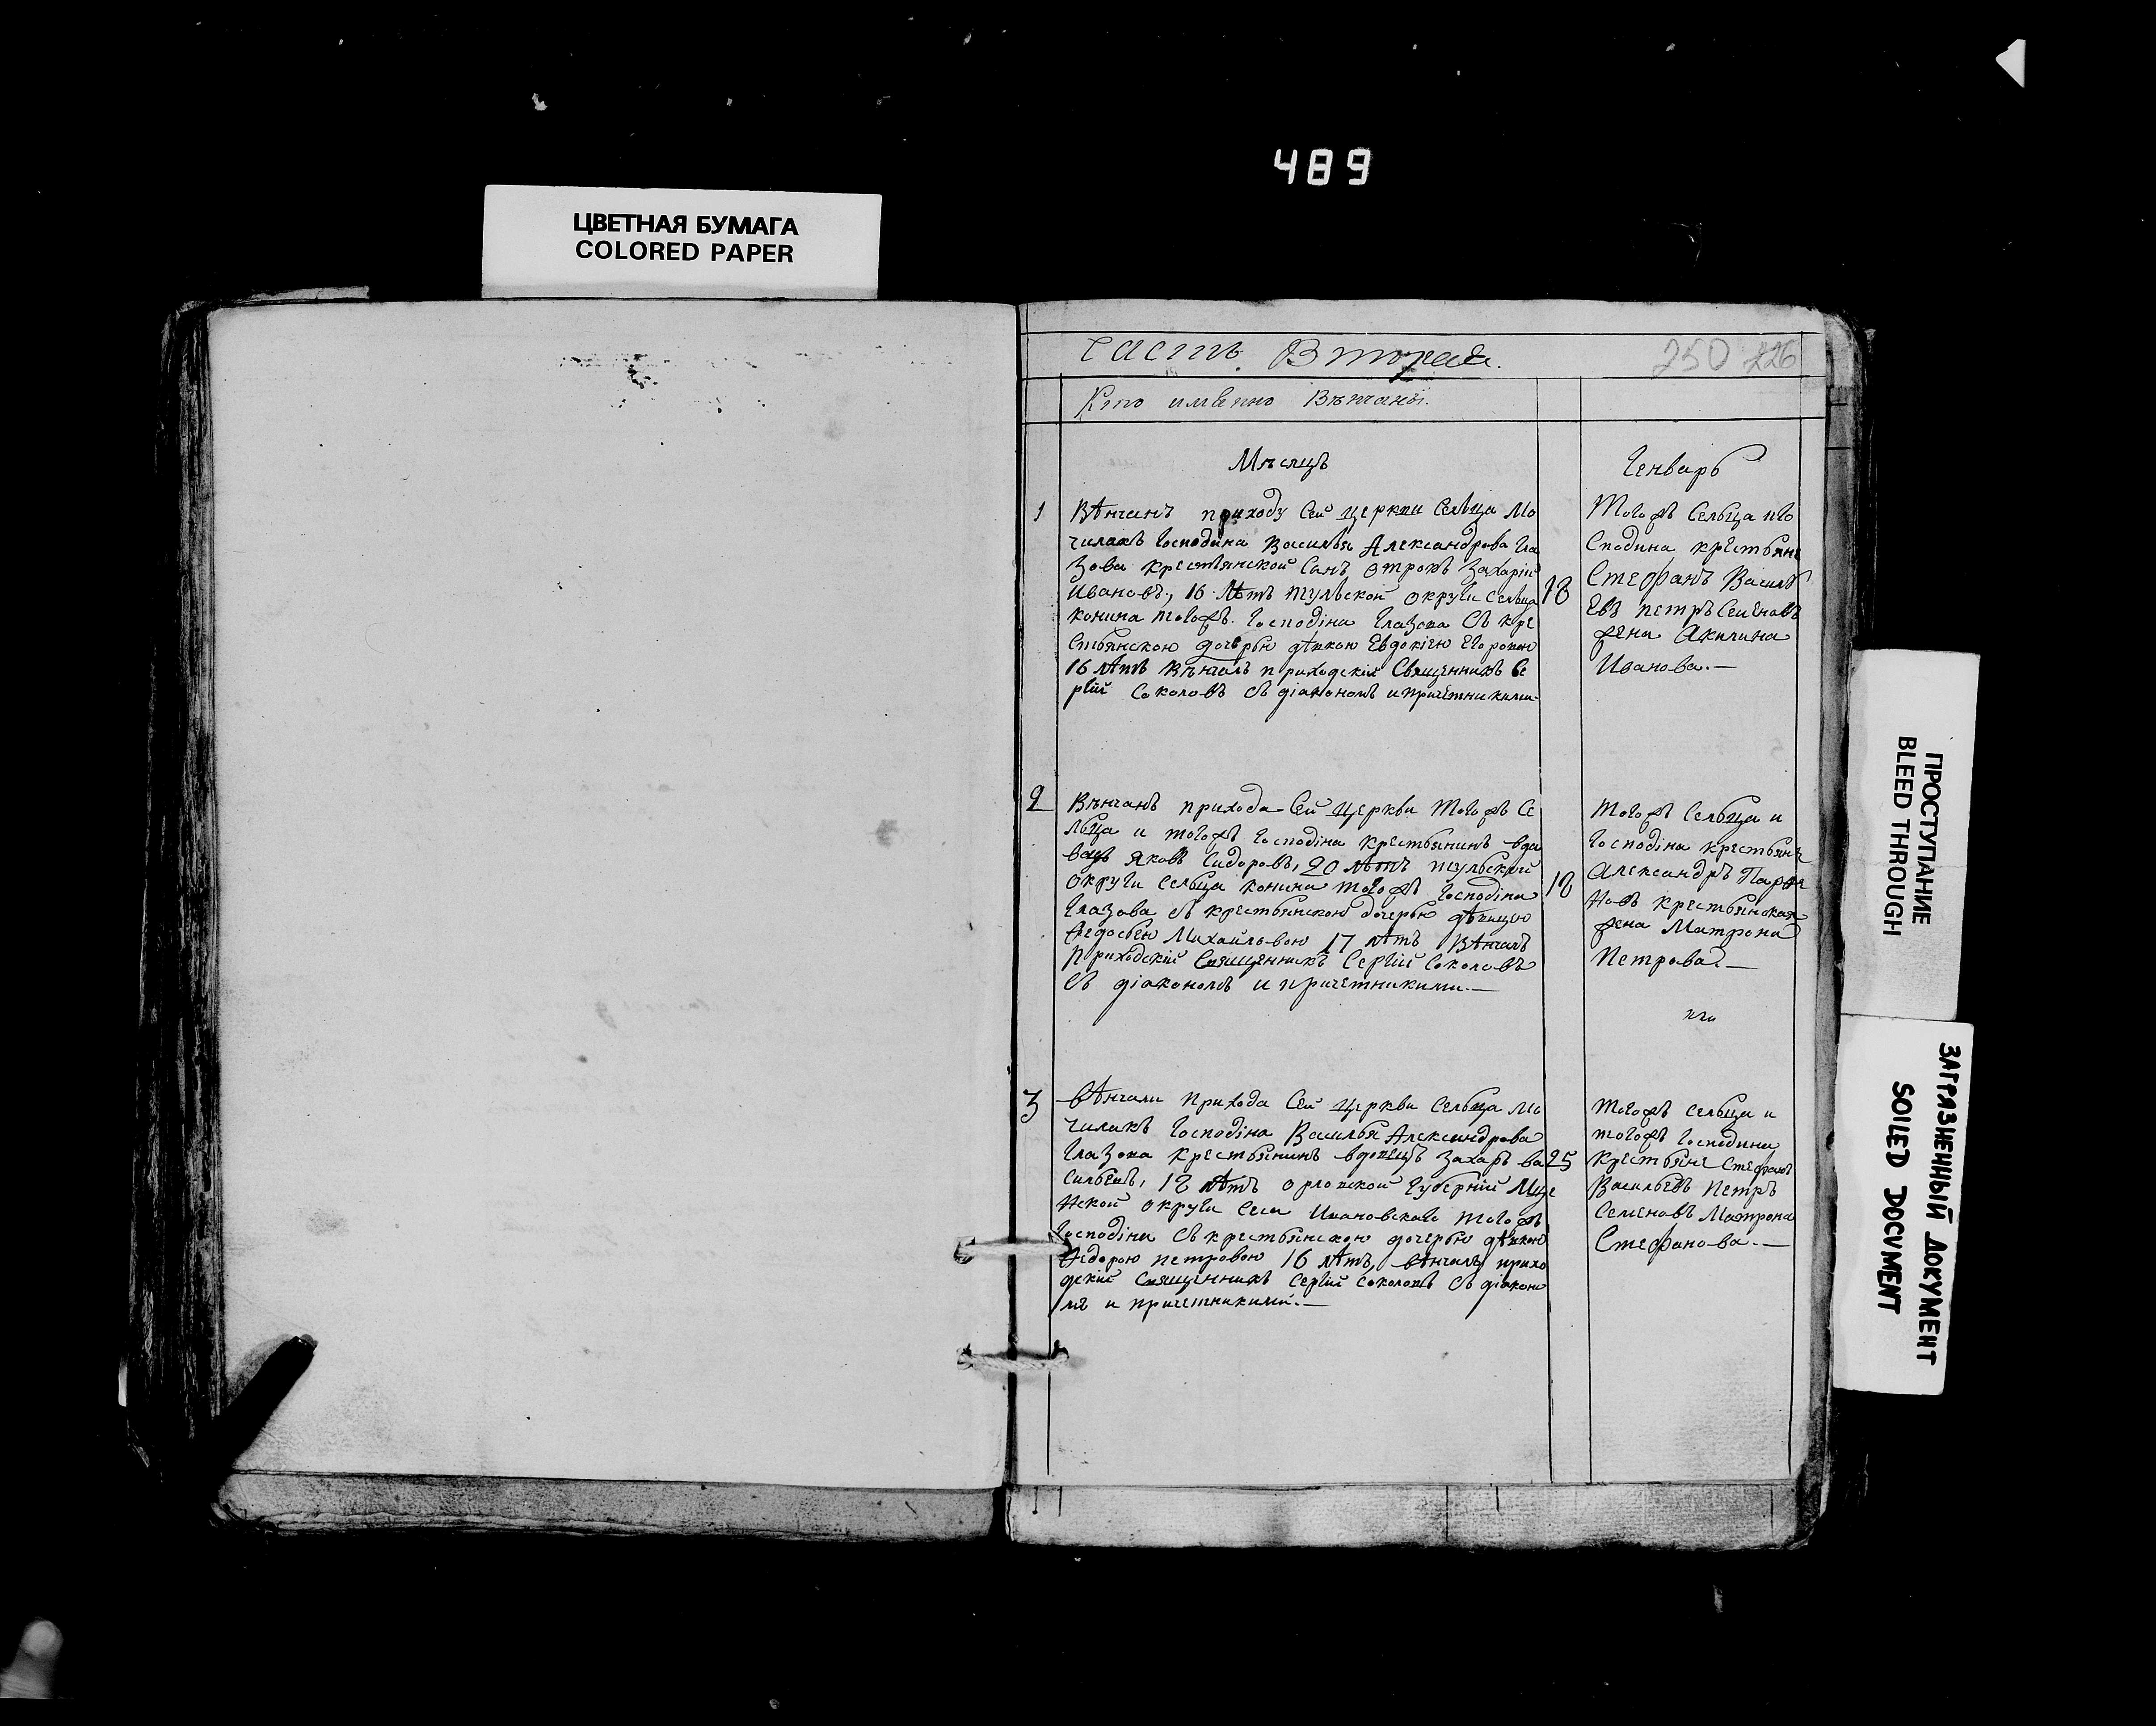 489
ЦВЕТНАЯ БУМАГА
COLORED PAPER
Часть Вторая.
250 226
Кто имѣнно Вѣнчаны.
Мѣсяцъ
Генварь
1
Вѣнчанъ приходу Сей церкви Сельца Мо
чилакъ Господина Василья Александрова Гла
зова крестьянской Сынъ отрокъ Захарій
Ивановъ, 16 лѣтъ тульской округи Сельца
конина тогожъ Господина Глазова Съ кре
стьянскою дочерью дѣвкою Евдокіею Егоровою
16 лѣтъ Вѣнчалъ приходскій Священникъ Се
ргій Соколовъ съ діакономъ и причетниками.
18
Тогожъ Сельца и го
Сподина крестьяне
Стефанъ Василь
Евъ петръ Семеновъ
жена Акилина
Иванова.—
2
Вѣнчанъ прихода Сей Церкви Тогожъ Се
льца и тогожъ Господина крестьянинъ вдо
вецъ Яковъ Сидоровъ, 20 лѣтъ тульской
округи Сельца конина тогожъ Господина
Глазова съ крестьянскою дочерью дѣвицею
Федосьею Михайловою 17 лѣтъ Вѣнчалъ
Приходскій Священникъ Сергій Соколовъ
Съ діакономъ и причетниками.—
18
тогожъ Сельца и
Господина крестьяне
Александръ Парфе
новъ крестьянская
жена Матрона
Петрова.—
3
Вѣнчали Прихода Сей Церкви Сельца Мо
чилакъ Господина Василья Александрова
Глазова Крестьянинъ вдовецъ Захаръ Ва
сильевъ, 18 лѣтъ орловской Губерніи Мце
нской округи Села Ивановскаго тогожъ
Господина Съ крестьянскою дочерью дѣвкою
Федорою петровою 16 лѣтъ, вѣнчалъ прихо
дскій Священникъ Сергій Соколовъ Съ діаконо
мъ и причетниками.—
25
тогожъ сельца и
тогожъ Господина
Крестьяне Стефанъ
Васильевъ Петръ
Семеновъ Матрона
Стефанова.—
ПРОСТУПАНИЕ
BLEED THROUGH
ЗАГРЯЗНЕННЫЙ ДОКУМЕНТ
SOILED DOCUMENT